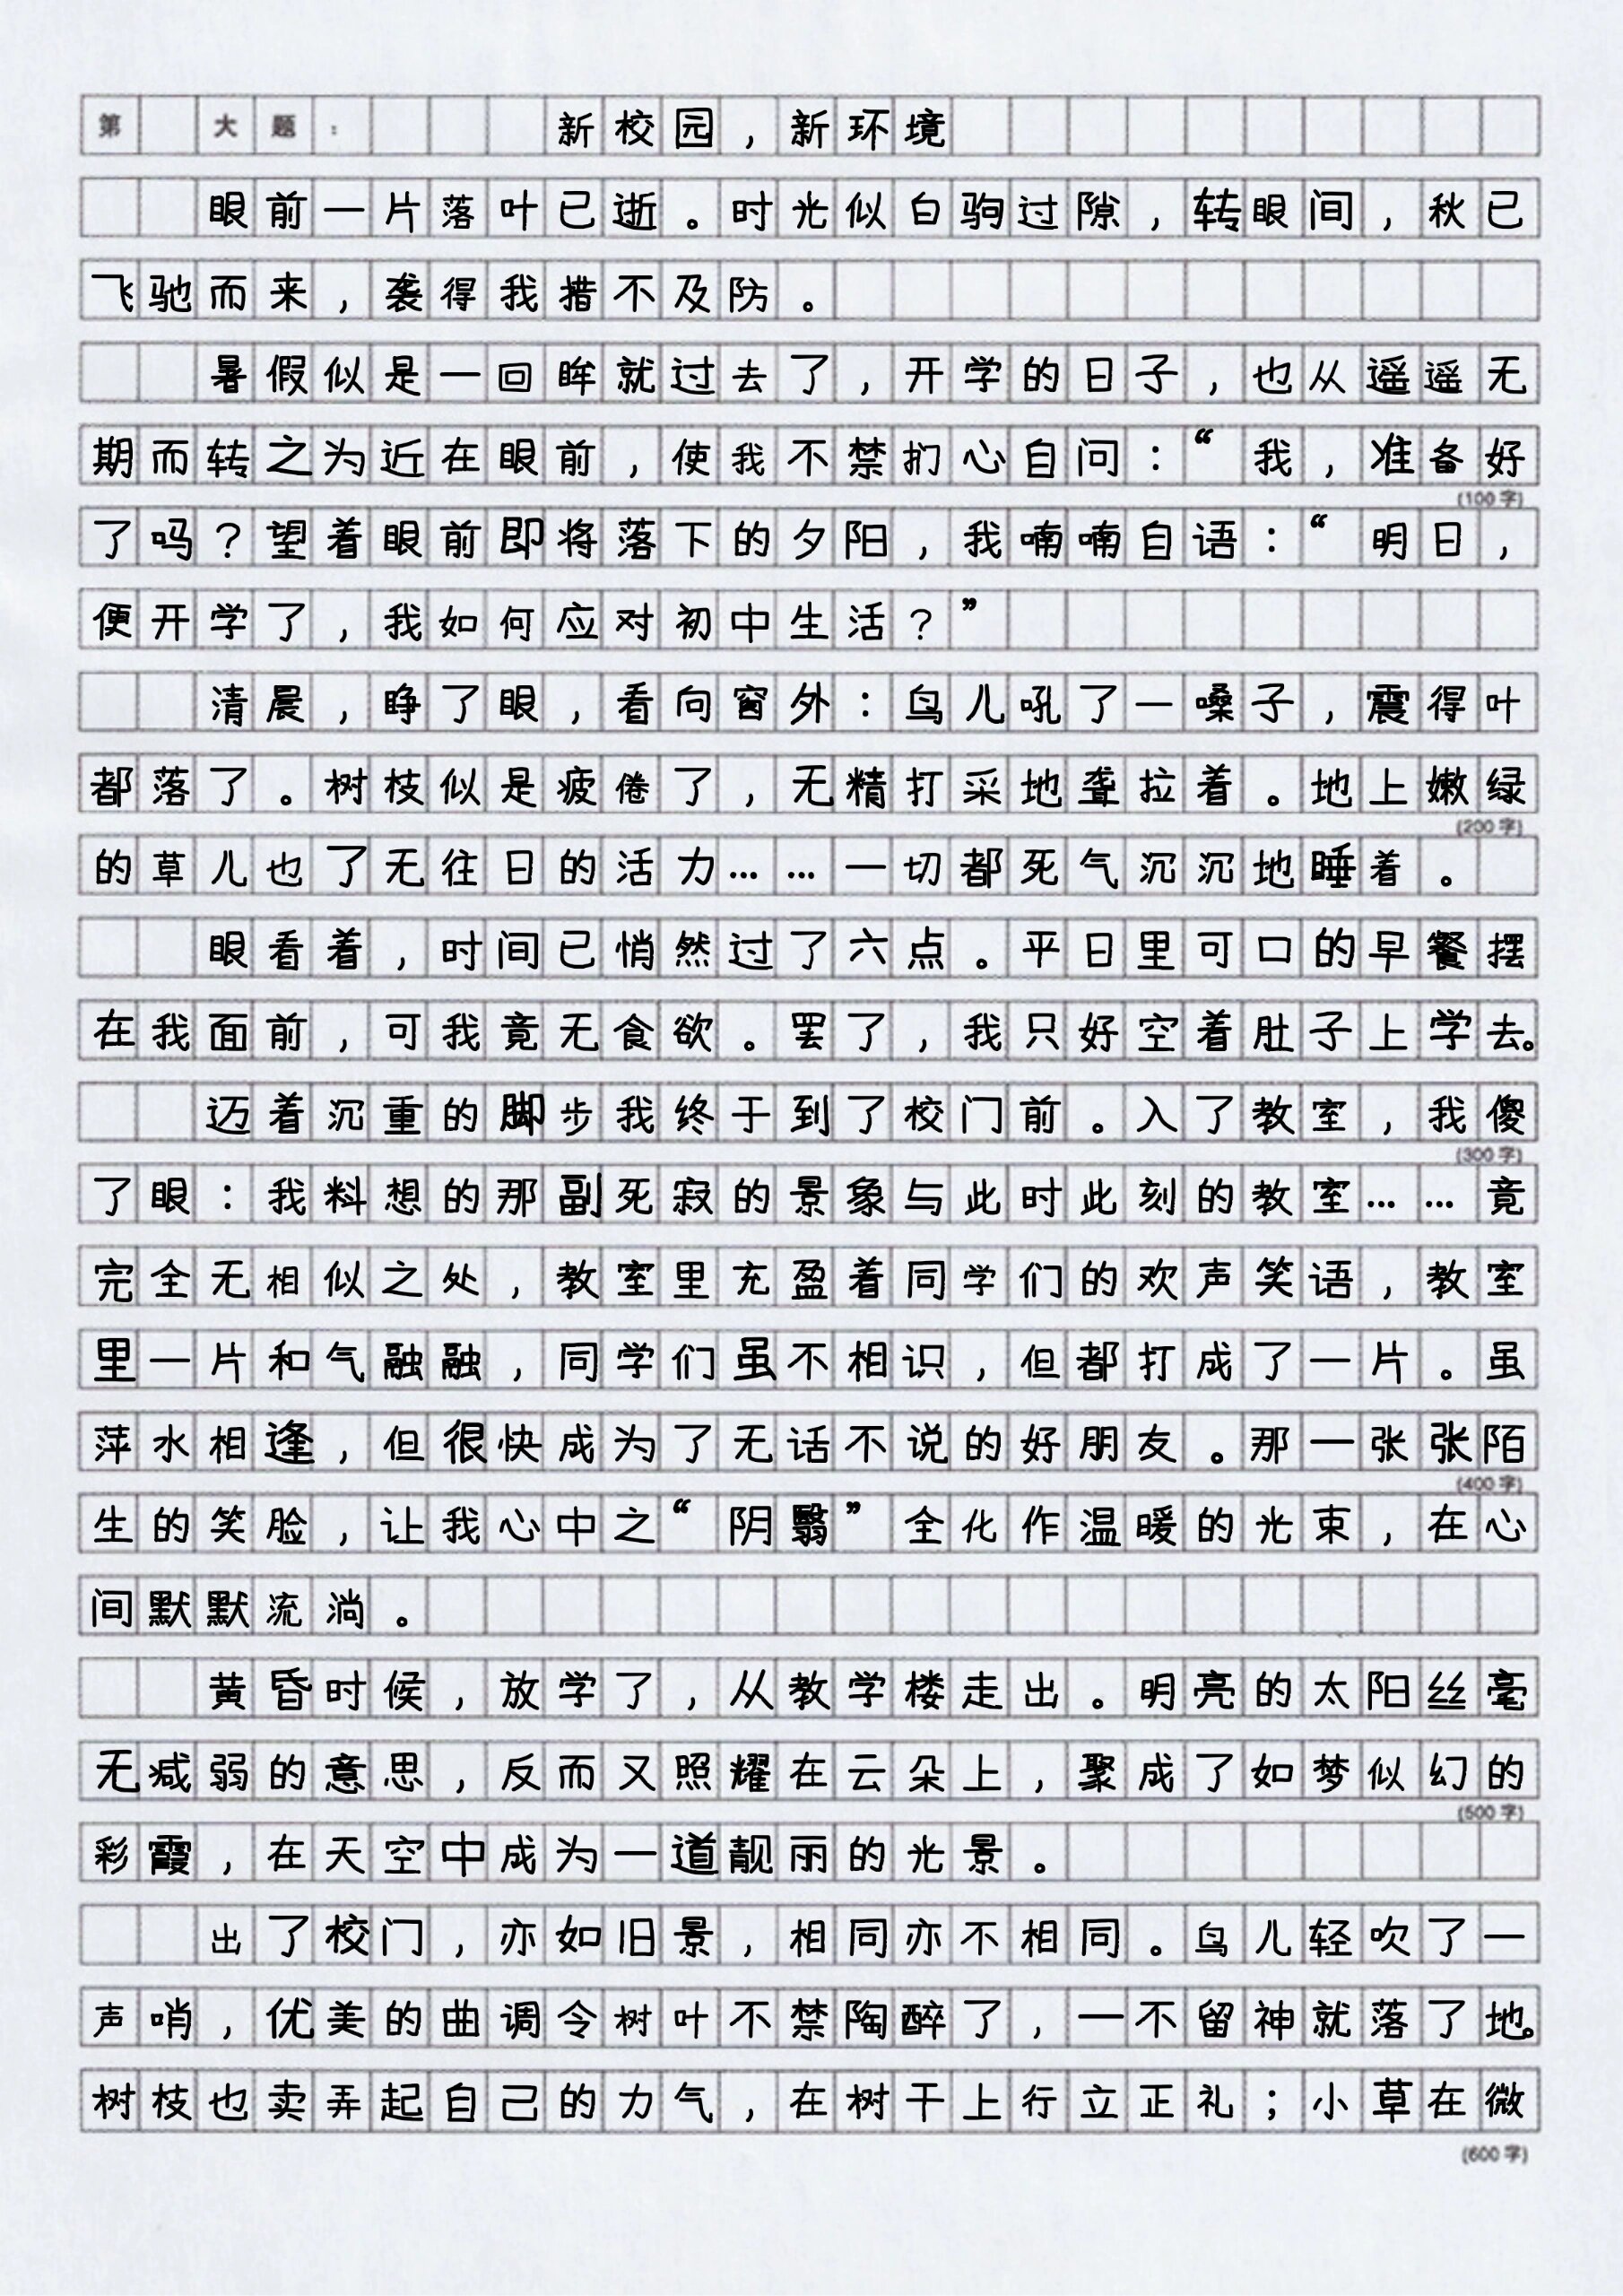 第 大题： 新校园，新环境
眼前一片落叶已逝。时光似白驹过隙，转眼间，秋已
飞驰而来，袭得我措不及防。
暑假似是一回眸就过去了，开学的日子，也从遥遥无
期而转之为近在眼前，使我不禁扪心自问：“我，准备好
(100字)
了吗？望着眼前即将落下的夕阳，我喃喃自语：“明日，
便开学了，我如何应对初中生活？”
清晨，睁了眼，看向窗外：鸟儿吼了一嗓子，震得叶
都落了。树枝似是疲倦了，无精打采地耷拉着。地上嫩绿
(200字)
的草儿也了无往日的活力……一切都死气沉沉地睡着。
眼看着，时间已悄然过了六点。平日里可口的早餐摆
在我面前，可我竟无食欲。罢了，我只好空着肚子上学去。
迈着沉重的脚步我终于到了校门前。入了教室，我傻
(300字)
了眼：我料想的那副死寂的景象与此时此刻的教室……竟
完全无相似之处，教室里充盈着同学们的欢声笑语，教室
里一片和气融融，同学们虽不相识，但都打成了一片。虽
萍水相逢，但很快成为了无话不说的好朋友。那一张张陌
(400字)
生的笑脸，让我心中之“阴翳”全化作温暖的光束，在心
间默默流淌。
黄昏时候，放学了，从教学楼走出。明亮的太阳丝毫
无减弱的意思，反而又照耀在云朵上，聚成了如梦似幻的
(500字)
彩霞，在天空中成为一道靓丽的光景。
出了校门，亦如旧景，相同亦不相同。鸟儿轻吹了一
声哨，优美的曲调令树叶不禁陶醉了，一不留神就落了地。
树枝也卖弄起自己的力气，在树干上行立正礼；小草在微
(600字)